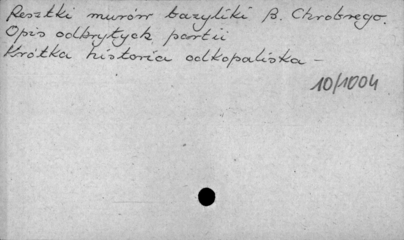 Resztki murów bazyliki B. Chrobrego.
Opis odkrytych partii
Krótka historia odkopaliska -
10/1004